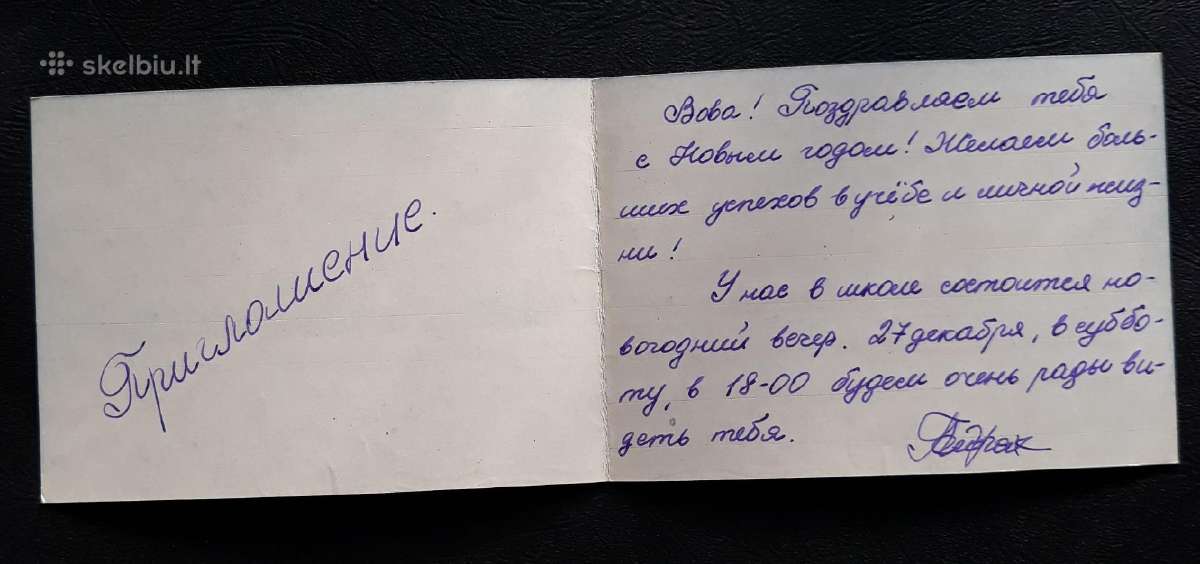 skelbiu.lt
Приглашение.
Вова! Поздравляем тебя
с Новым годом! Желаем боль-
ших успехов в учёбе и личной жиз-
ни!
У нас в школе состоится но-
вогодний вечер. 27 декабря, в суббо-
ту, в 18-00 будем очень рады ви-
деть тебя.